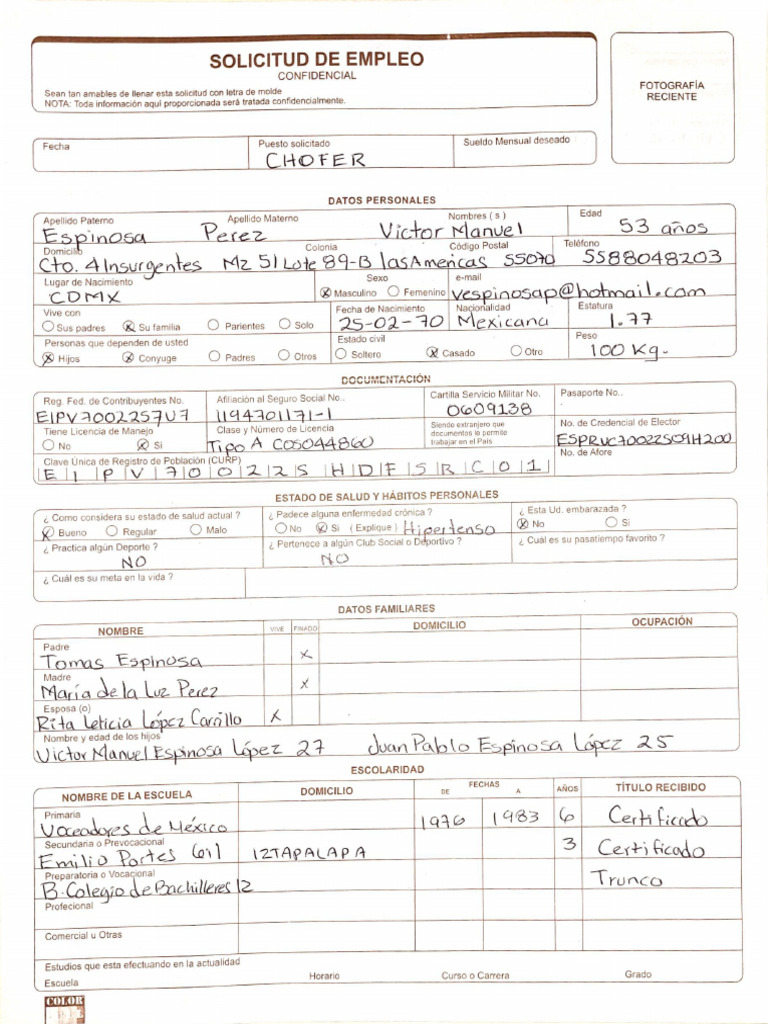 SOLICITUD DE EMPLEO
CONFIDENCIAL
Sean tan amables de llenar esta solicitud con letra de molde
NOTA: Toda información aquí proporcionada será tratada confidencialmente.
FOTOGRAFÍA
RECIENTE
Fecha Puesto solicitado Sueldo Mensual deseado
CHOFER
DATOS PERSONALES
Apellido Paterno Apellido Materno Nombres ( s ) Edad
Espinosa Perez Victor Manuel 53 años
Domicilio Colonia Código Postal Teléfono
Cto. 4 Insurgentes Mz 51 Lote 89-B las Americas 55070 5588048203
Lugar de Nacimiento Sexo e-mail
CDMX Masculino Femenino vespinosap@hotmail.com
Vive con Fecha de Nacimiento Nacionalidad Estatura
Sus padres Su familia Parientes Solo 25-02-70 Mexicana 1.77
Personas que dependen de usted Estado civil Peso
Hijos Conyuge Padres Otros Soltero Casado Otro 100 Kg.
DOCUMENTACIÓN
Reg. Fed. de Contribuyentes No. Afiliación al Seguro Social No.. Cartilla Servicio Militar No. Pasaporte No..
EIPV7002257U7 1194701171-1 0609138
Tiene Licencia de Manejo Clase y Número de Licencia Siendo extranjero que documentos le permite trabajar en el País No. de Credencial de Elector
No Si Tipo A C05044860
No. de Afore
Clave Única de Registro de Población (CURP)
E I P V 7 0 0 2 2 5 H D F S R C 0 1
ESTADO DE SALUD Y HÁBITOS PERSONALES
¿ Como considera su estado de salud actual ? ¿ Padece alguna enfermedad crónica ? ¿ Esta Ud. embarazada ?
Bueno Regular Malo No Si ( Explique ) Hipertenso No Si
¿ Practica algún Deporte ? ¿ Pertenece a algún Club Social o Deportivo ? ¿ Cuál es su pasatiempo favorito ?
NO NO
¿ Cuál es su meta en la vida ?
DATOS FAMILIARES
NOMBRE VIVE FINADO DOMICILIO OCUPACIÓN
Padre
Tomas Espinosa X
Madre
María de la Luz Perez X
Esposa (o)
Rita Leticia López Carrillo X
Nombre y edad de los hijos
Victor Manuel Espinosa López 27 Juan Pablo Espinosa López 25
ESCOLARIDAD
NOMBRE DE LA ESCUELA DOMICILIO FECHAS DE A AÑOS TÍTULO RECIBIDO
Primaria
Voceadores de México 1976 1983 6 Certificado
Secundaria o Prevocacional
Emilio Portes Gil IZTAPALAPA 3 Certificado
Preparatoria o Vocacional
B. Colegio de Bachilleres 12 Trunco
Profecional
Comercial u Otras
Estudios que esta efectuando en la actualidad
Escuela Horario Curso o Carrera Grado
COLOR